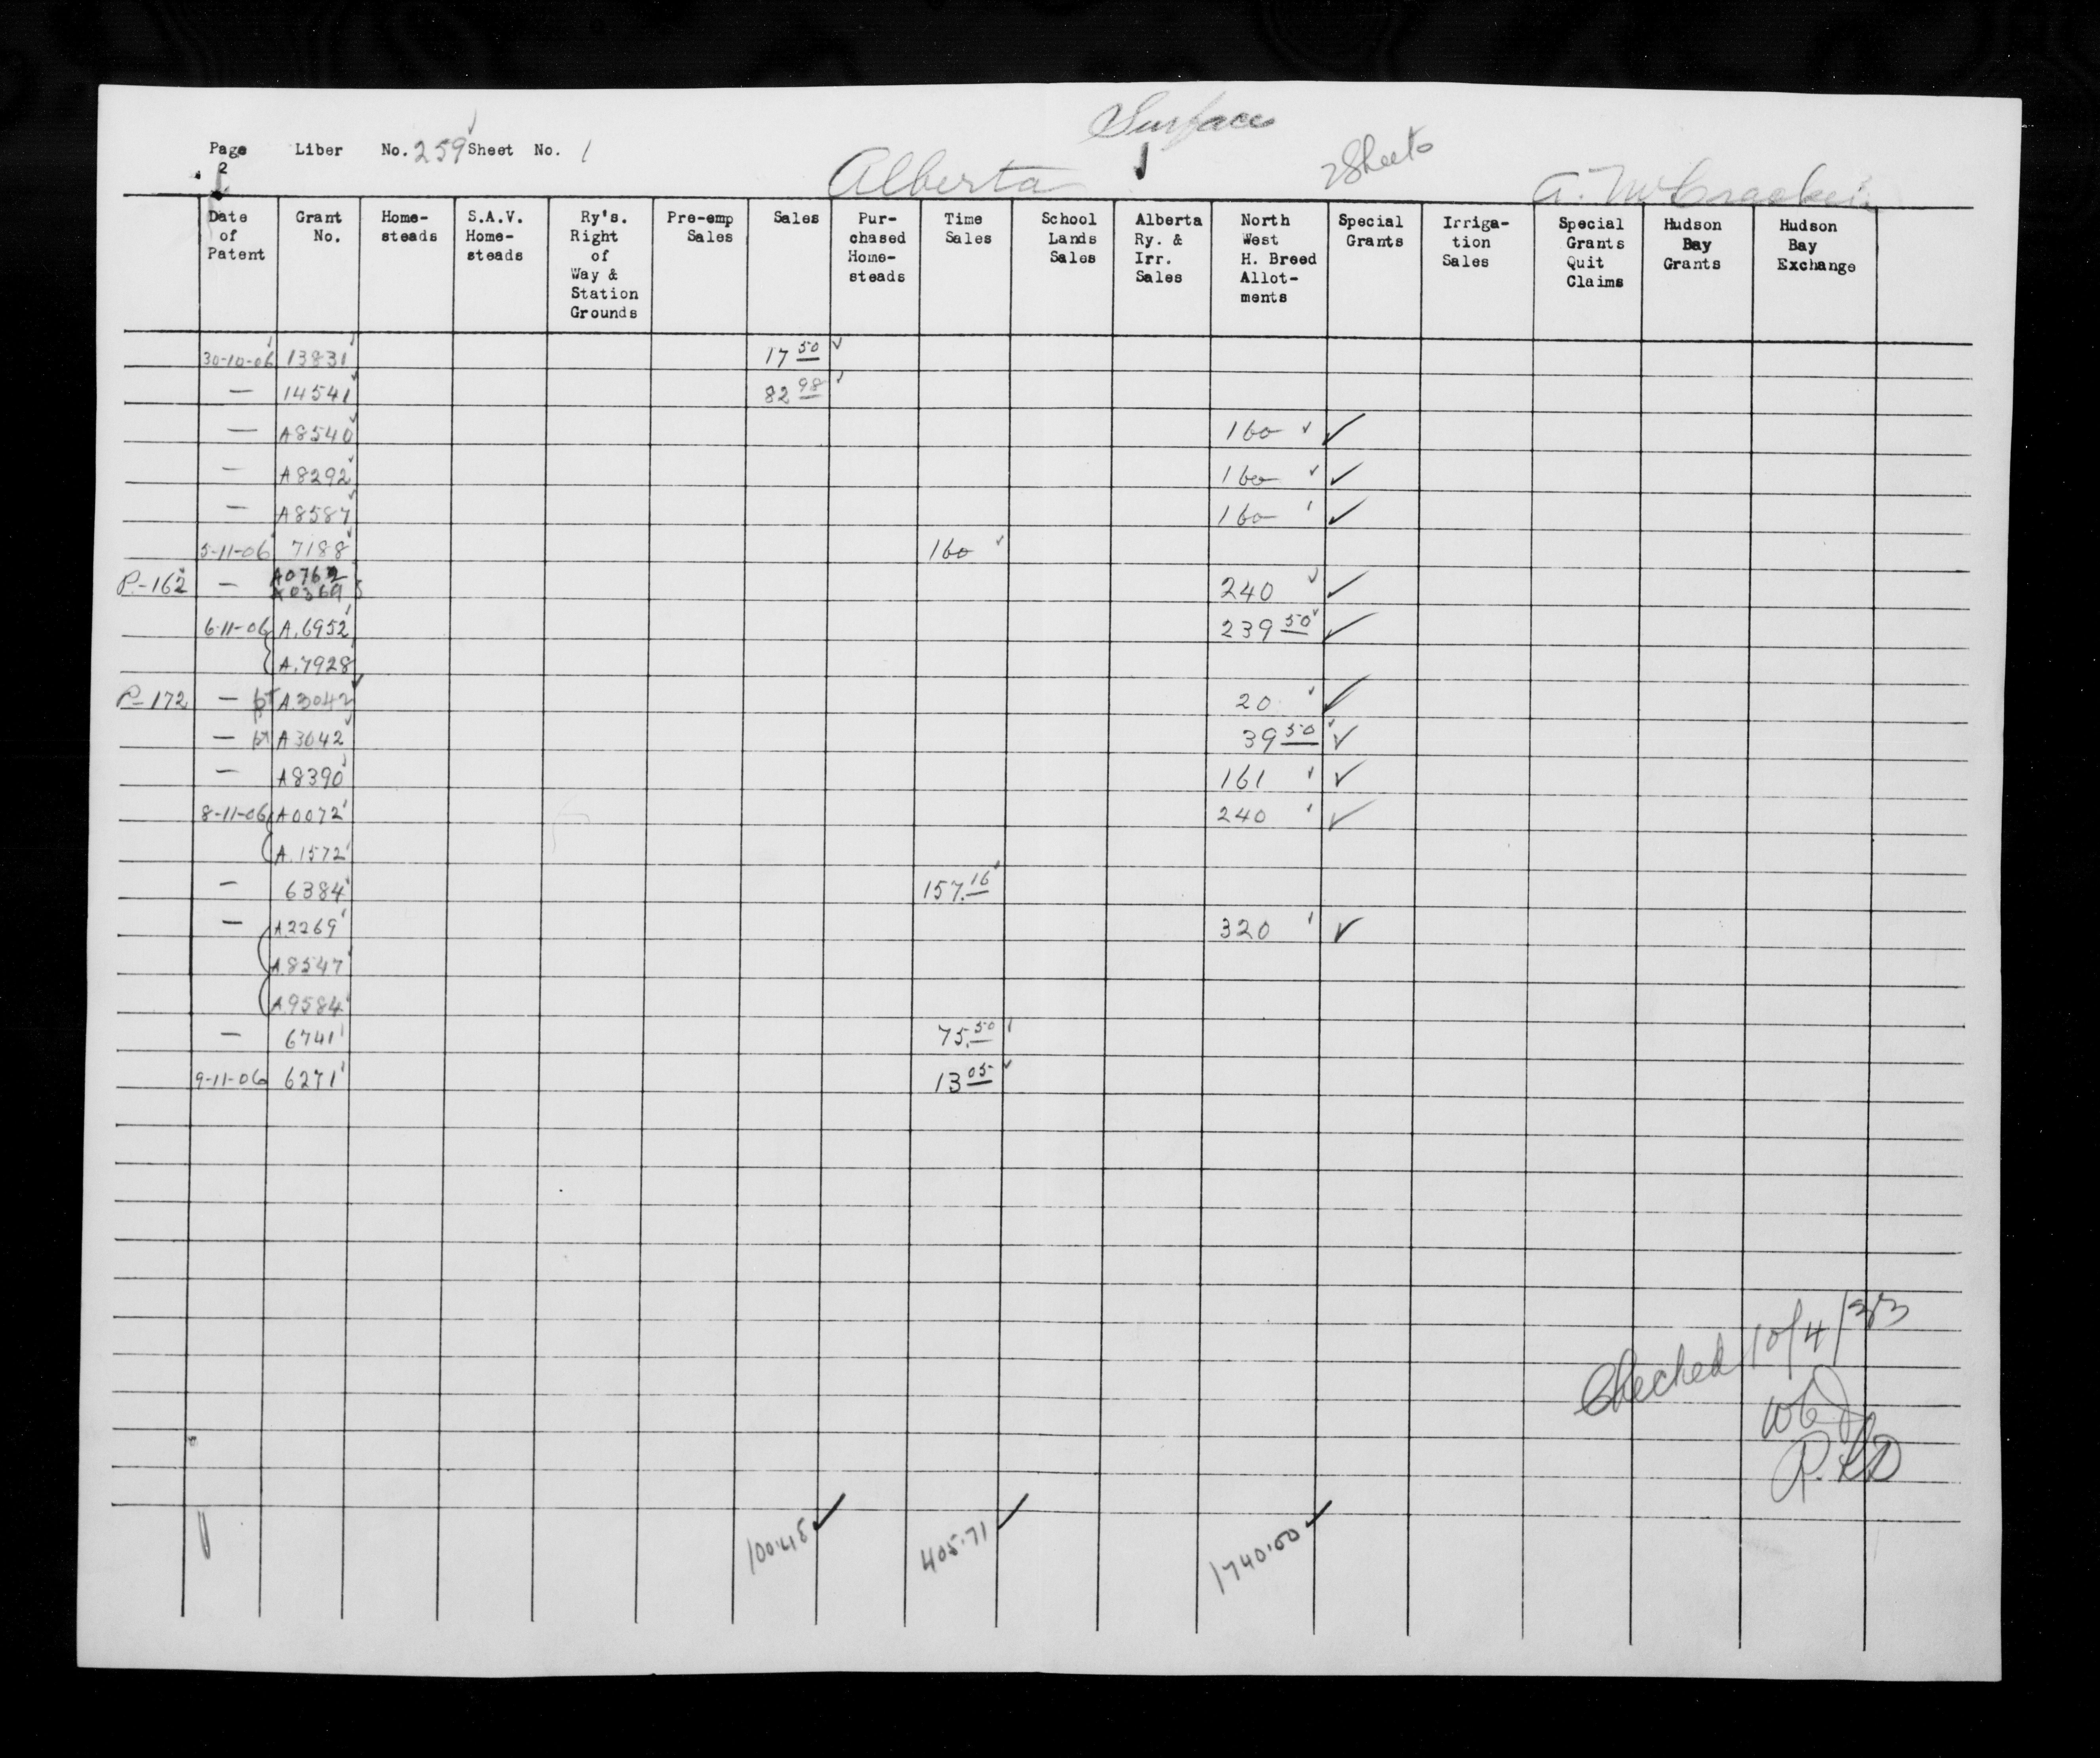 Surface
Page Liber No. 259 Sheet No. 1
2
Alberta
2 Sheets
A. McCracken
Date of Patent
Grant No.
Home-steads
S.A.V. Home-steads
Ry's. Right of Way & Station Grounds
Pre-emp Sales
Sales
Pur-chased Home-steads
Time Sales
School Lands Sales
Alberta Ry. & Irr. Sales
North West H. Breed Allot-ments
Special Grants
Irriga-tion Sales
Special Grants Quit Claims
Hudson Bay Grants
Hudson Bay Exchange
30-10-06 13831 17 50
— 14541 82 98
— A8540 160
— A8292 160
— A8587 160
5-11-06 7188 160
P-162 — A0762 240
A0369
6-11-06 A.6952 239 50
A.7928
P-172 — pt A.3042 20
— pt A3042 39 50
— A8390 161
8-11-06 A0072 240
A.1572
— 6384 157.16
— A2269 320
A.8547
A.9584
— 6741 75.50
9-11-06 6271 13 05
Checked 10/4/33
P.
100.48 405.71 1740.00